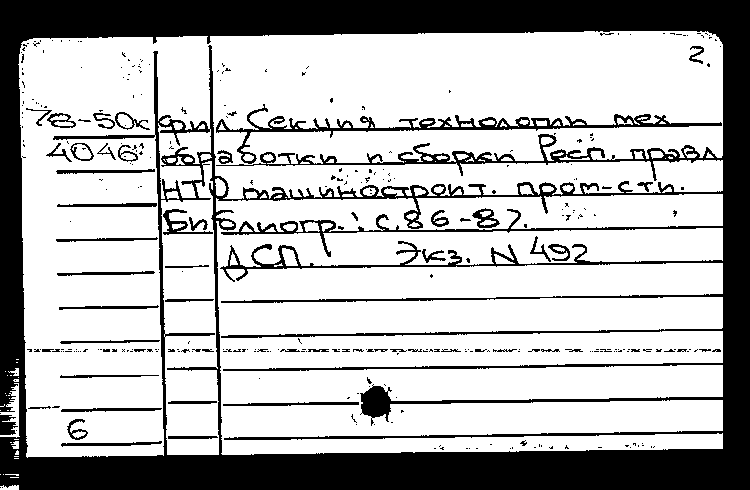 2.
78-50к фил. Секция технологии мех
4046 обработки и сборки Респ. правл
НТО машиностроит. пром-сти.
Библиогр.: с.86-87.
ДСП. Экз. N 492
6